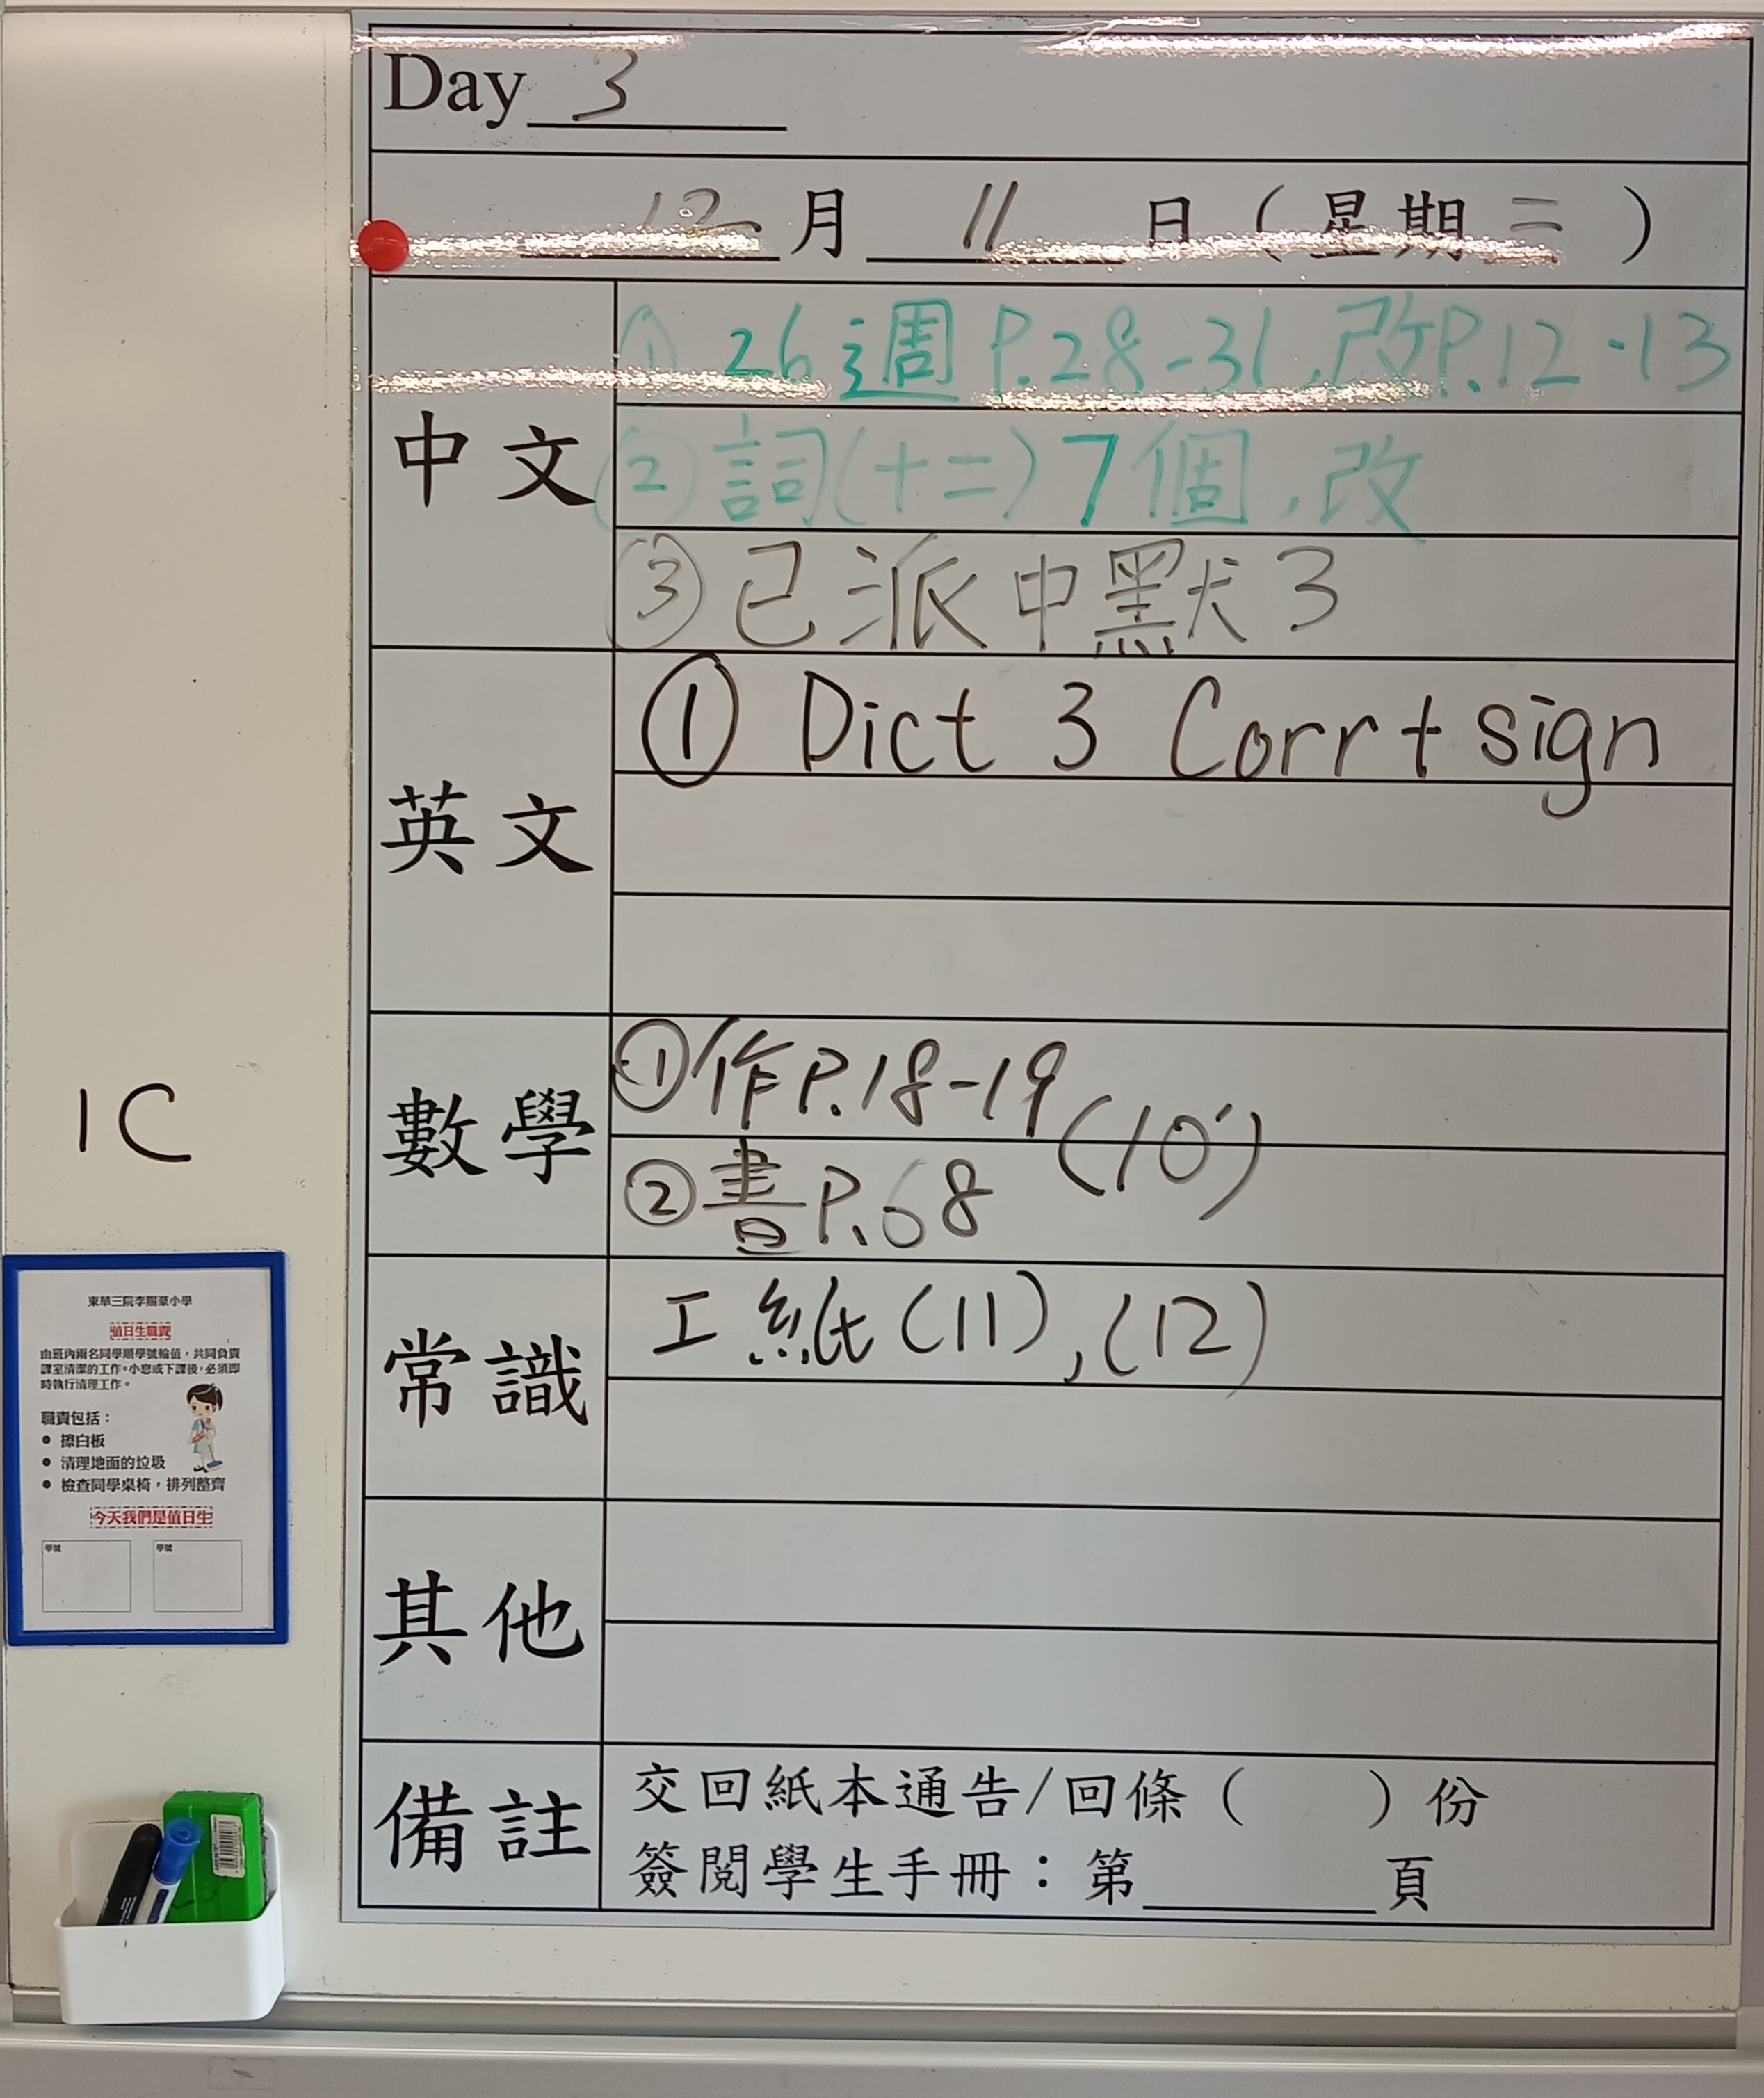 Day 3
12 月 11 日 ( 星期二 )
中文
① 26週 P.28-31, 改P.12-13
② 詞(十二) 7個, 改
③ 已派中默3
英文
① Dict 3 Corr + sign
數學
① 作P.18-19
(10')
② 書P.68
常識
工紙 (11), (12)
其他
備註
交回紙本通告/回條 ( ) 份
簽閱學生手冊：第 頁
1C
東華三院李賜豪小學
值日生職責
由班內兩名同學順學號輪值，共同負責
課室清潔的工作。小息或下課後，必須即
時執行清理工作。
職責包括：
• 擦白板
• 清理地面的垃圾
• 檢查同學桌椅，排列整齊
今天我們是值日生
學號 學號